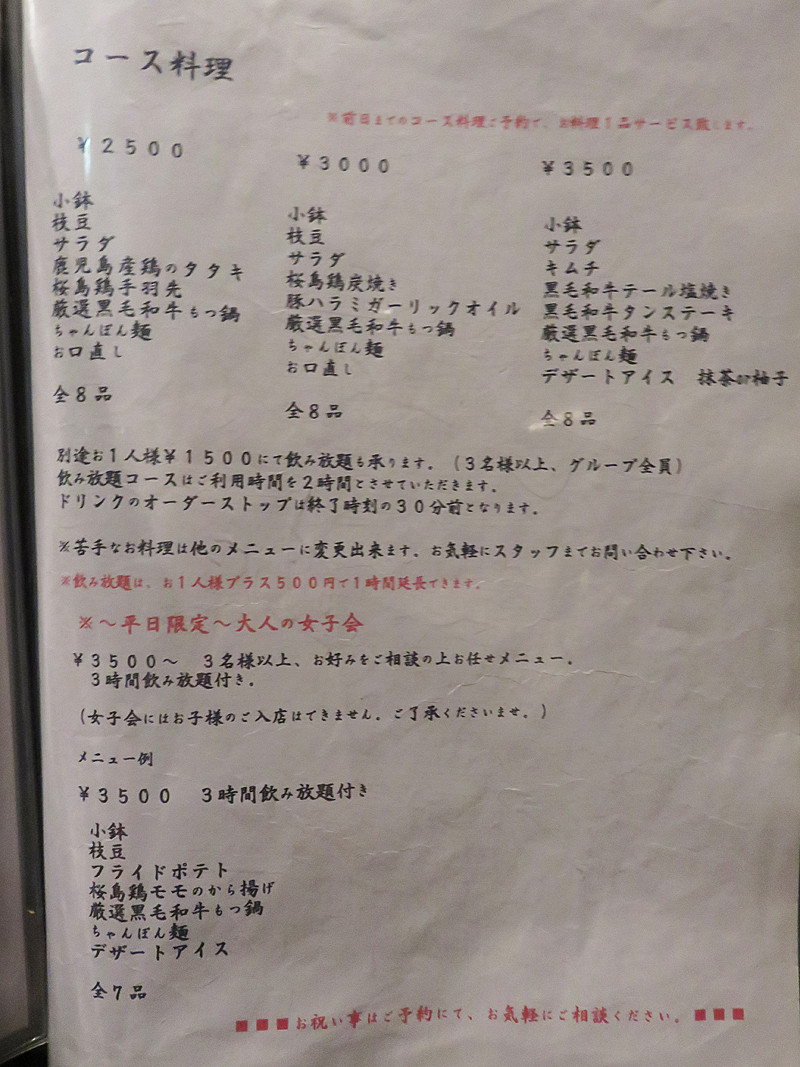 コース料理
※前日までのコース料理ご予約で、お料理1品サービス致します。
¥2500
小鉢
枝豆
サラダ
鹿児島産鶏のタタキ
桜島鶏手羽先
厳選黒毛和牛もつ鍋
ちゃんぽん麺
お口直し
全8品
¥3000
小鉢
枝豆
サラダ
桜島鶏炭焼き
豚ハラミガーリックオイル
厳選黒毛和牛もつ鍋
ちゃんぽん麺
お口直し
全8品
¥3500
小鉢
サラダ
キムチ
黒毛和牛テール塩焼き
黒毛和牛タンステーキ
厳選黒毛和牛もつ鍋
ちゃんぽん麺
デザートアイス 抹茶or柚子
全8品
別途お1人様¥1500にて飲み放題も承ります。(3名様以上、グループ全員)
飲み放題コースはご利用時間を2時間とさせていただきます。
ドリンクのオーダーストップは終了時刻の30分前となります。
※苦手なお料理は他のメニューに変更出来ます。お気軽にスタッフまでお問い合わせ下さい。
※飲み放題は、お1人様プラス500円で1時間延長できます。
※~平日限定~大人の女子会
¥3500~ 3名様以上、お好みをご相談の上お任せメニュー。
3時間飲み放題付き。
(女子会にはお子様のご入店はできません。ご了承くださいませ。)
メニュー例
¥3500 3時間飲み放題付き
小鉢
枝豆
フライドポテト
桜島鶏モモのから揚げ
厳選黒毛和牛もつ鍋
ちゃんぽん麺
デザートアイス
全7品
■■■お祝い事はご予約にて、お気軽にご相談ください。■■■